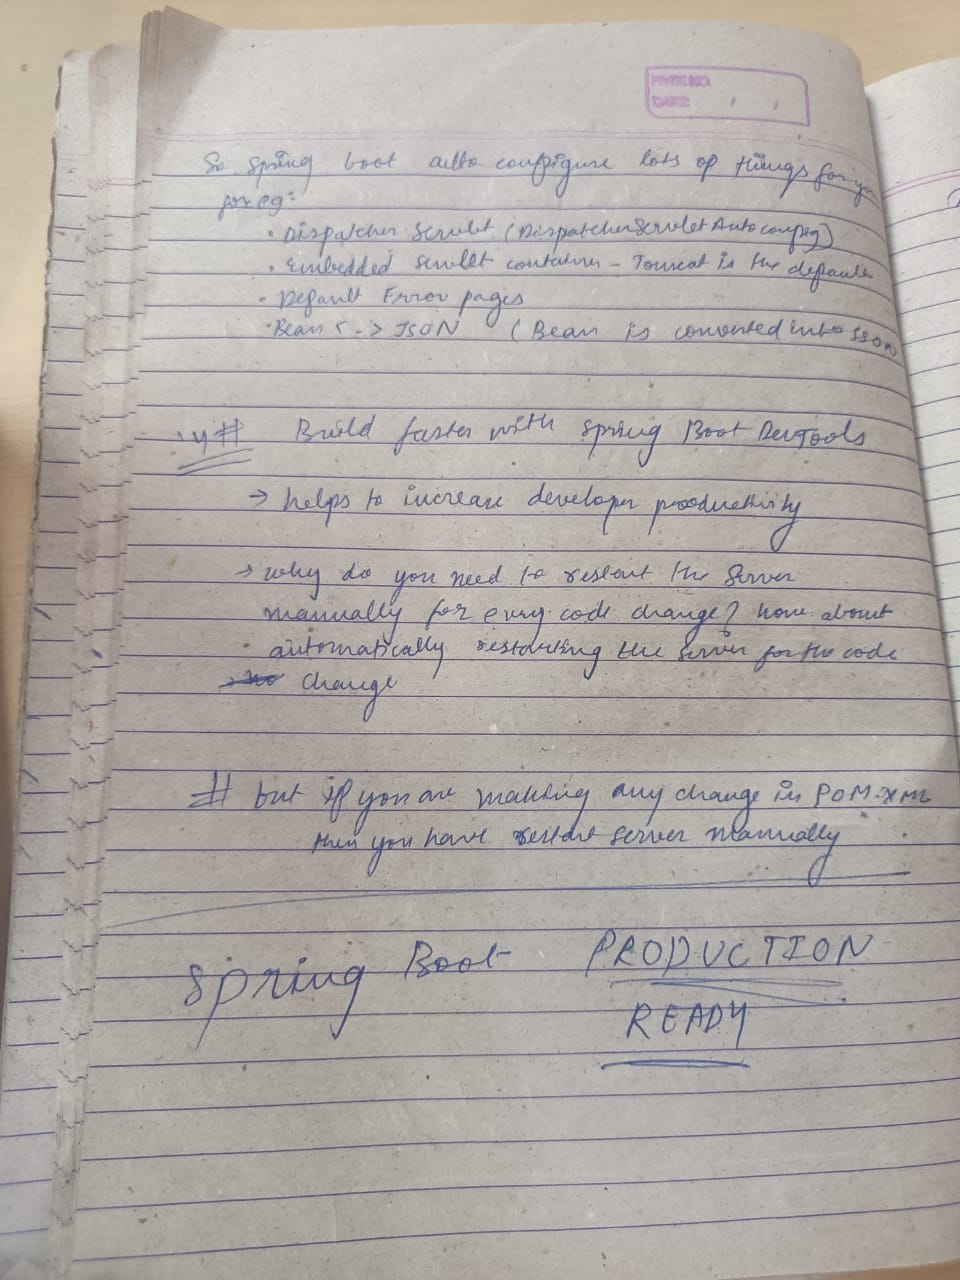 DATE: / /
So spring boot auto configure lots of things for you
for eg:
• Dispatcher Servlet (DispatcherServletAutoconfig)
• Embedded servlet container - Tomcat is the default
• Default Error pages
• Bean <-> JSON (Bean is converted into JSON
4# Build faster with spring Boot DevTools
→ helps to increase developer productivity
→ why do you need to restart the server
manually for every code change? how about
automatically restarting the server for the code
change
# but if you are making any change in POM.xml
then you have restart server manually
spring Boot PRODUCTION
READY